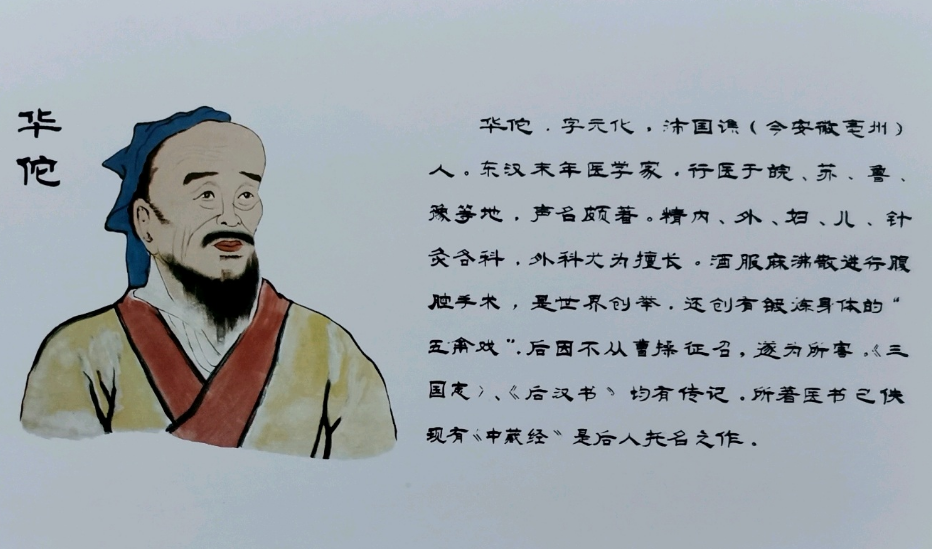 华佗
华佗．字元化，沛国谯（今安徽亳州）
人。东汉末年医学家．行医于皖、苏、鲁、
豫等地．声名颇著。精内、外、妇、儿、针
灸各科．外科尤为擅长。酒服麻沸散进行腹
腔手术，是世界创举．还创有锻涑身体的“
五禽戏”．后因不从曹操征召，遂为所害．《三
国志》、《后汉书》均有传记．所著医书已佚
现有《中藏经》是后人托名之作．